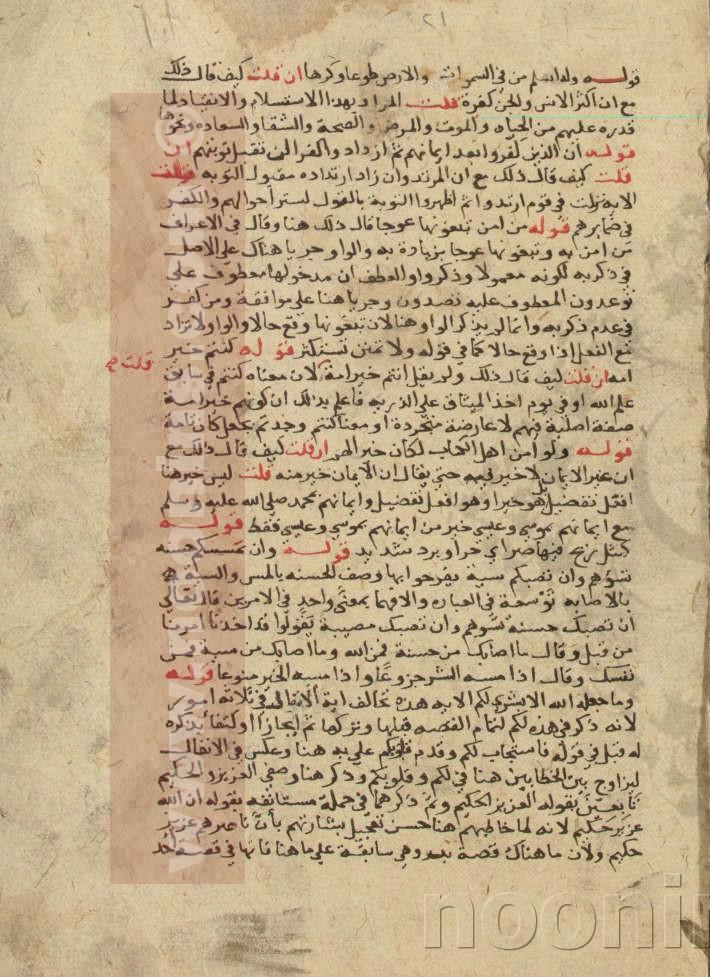 ٢١
قوله وله اسلم من في السموات والارض طوعا وكرها ان قلت كيف قال ذلك
مع ان اكثر الانس والجن كفرة قلت المراد بهذا الاستسلام والانقياد لما
قدره عليهم من الحياه والموت والمرض والصحة والشقا والسعاده ونحوها
قوله ان الذين كفروا بعد ايمانهم ثم ازدادوا كفرا لن تقبل توبتهم ان
قلت كيف قال ذلك مع ان المرتد وان زاد ارتداده مقبول التوبه قلت
الاية نزلت في قوم ارتدوا ثم اظهروا التوبة بالقول لستر احوالهم والكفر
في ضمايرهم قوله من امن تبغونها عوجا قال ذلك هنا وقال في الاعراف
من امن به وتبغونها عوجا بزيادة به والواو جريا هناك على الاصل
في ذكر به لكونه معمولا وذكر واو العطف ان مدخولها معطوف على
توعدون المعطوف عليه تصدون وجريا هنا على موافقة ومن كفر
في عدم ذكر به وانما لم يذكر الواو هنا لان تبغونها وقع حالا والواو لا تزاد
مع الفعل اذا وقع حالا كما في قوله ولا تمنن تستكثر قوله كنتم خير
امه ان قلت كيف قال ذلك ولم يقل انتم خير امة لان معناه كنتم في سابق
قلت صح
علم الله او في يوم اخذ الميثاق على الذريه فاعلم بذلك ان كونهم خير امة
صفة اصلية فيهم لا عارضة متجددة او معنا كنتم وجدتم بجعل كان تامة
قوله ولو امن اهل الكتاب لكان خير الهم ان قلت كيف قال ذلك مع
ان غير الايمان لا خير فيه حتي يقال ان الايمان خير منه قلت ليس خير هنا
افعل تفضيل بل هو خير او هو افعل تفضيل وايمانهم بمحمد صلى الله عليه وسلم
مع ايمانهم بموسي وعيسي خير من ايمانهم بموسي وعيسي فقط قوله
كمثل ريح فيها صر اي حر او برد شديد قوله وان تمسسكم حسنه
تسؤهم وان تصبكم سية يفرحوا بها وصف الحسنه بالمس والسية
بالاصابه توسعة في العباره والا فهما بمعنى واحد في الامرين قال تعالي
ان تصبك حسنة تسوهم وان تصبك مصيبة يقولوا قد اخذنا امرنا
من قبل وقال ما اصابك من حسنة فمن الله وما اصابك من سية فمن
نفسك وقال اذا مسه الشر جزوعا واذا مسه الخير منوعا قوله
وما جعله الله الا بشري لكم الايه هذه تخالف اية الانفال في ثلاثه امور
لانه ذكر في هذه لكم لتمام القصه قبلها وتركها ثم ايجازا او اكتفا بذكره
له قبل في قوله فاستجاب لكم وقدم قلوبكم علي به هنا وعكس في الانفال
ليزاوج بين الخطابين هنا في لكم وقلوبكم وذكر هنا وصفي العزيز والحكيم
تابعين بقوله العزيز الحكيم وثم ذكرهما في جملة مستانفه بقوله ان الله
عزيز حكيم لانه لما خاطبهم هنا حسن تعجيل بشارتهم بان ناصرهم عزيز
حكيم ولان ما هناك قصة بدر وهي سابقة علي ما هنا فانها في قصة احد
noonin